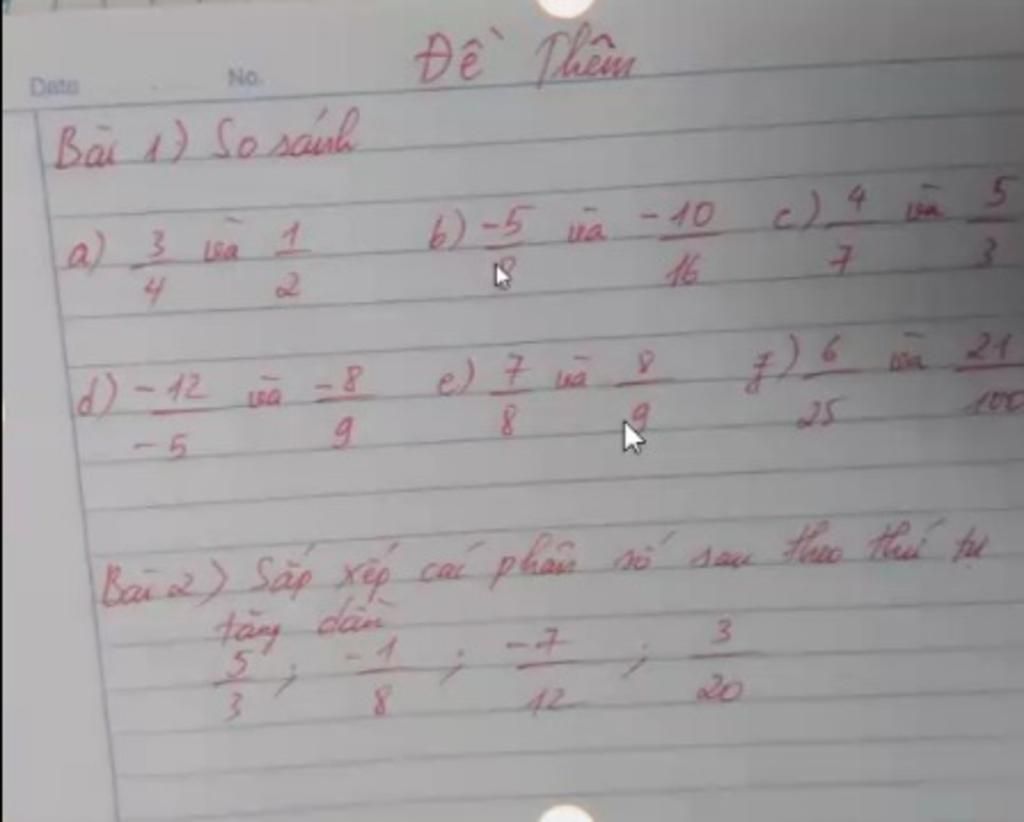 Date No. Đề Thêm
Bài 1) So sánh
a) 3/4 và 1/2 b) -5/8 và -10/16 c) 4/7 và 5/3
d) -12/-5 và -8/9 e) 7/8 và 8/9 f) 6/25 và 21/100
Bài 2) Sắp xếp các phân số sau theo thứ tự
tăng dần
5/3 ; -1/8 ; -7/12 ; 3/20